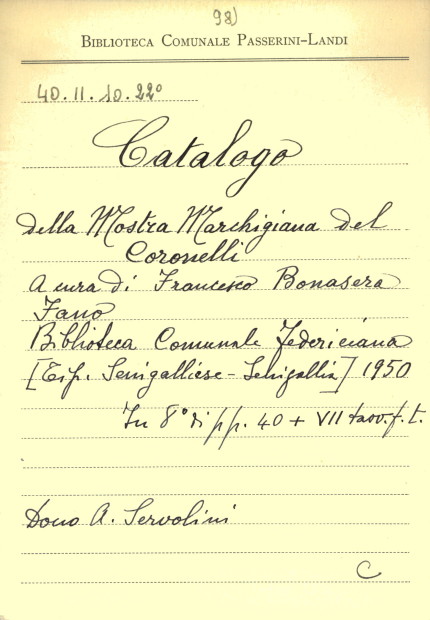 98)
BIBLIOTECA COMUNALE PASSERINI-LANDI
40.II.10.22º
Catalogo
della Mostra Marchigiana del
Coronelli
A cura di Francesco Bonasera
Fano
Biblioteca Comunale Federiciana
[Tip. Senigalliese - Senigallia] 1950
In 8º di pp. 40 + VII tavv. f. t.
Dono A. Servolini
C